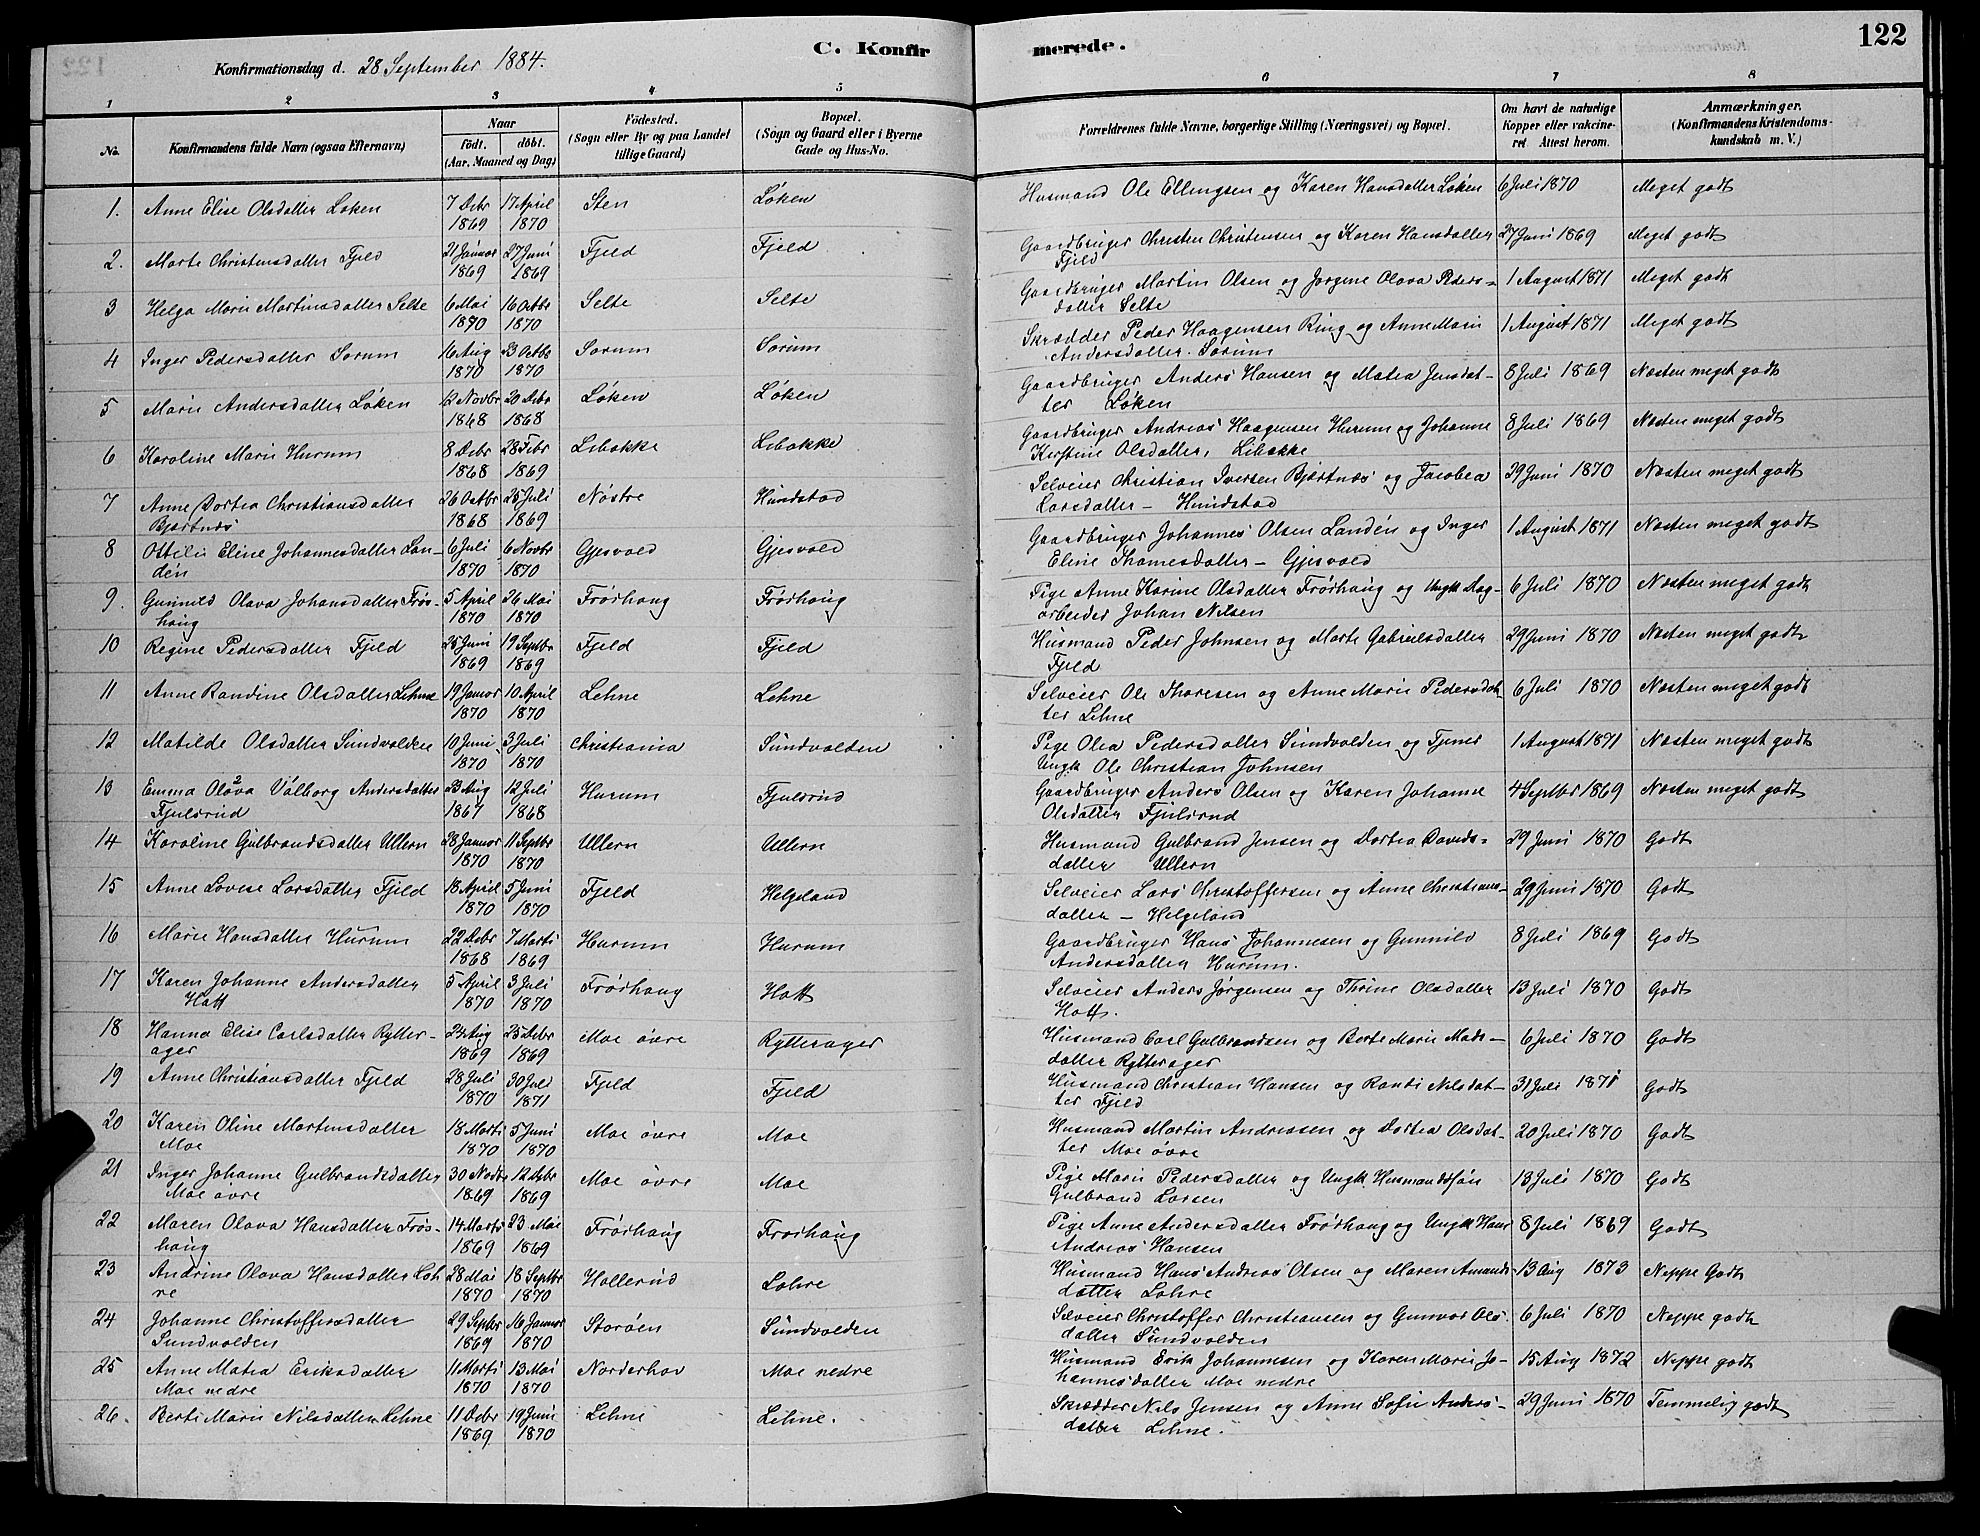 C. Konfirmerede.
122
Konfirmationsdag d. 28 September 1884.
1 2 3 4 5 6 7 8
No. | Konfirmandens fulde Navn (ogsaa Efternavn) | Naar födt. döbt. (Aar, Maaned og Dag) | Födested. (Sogn eller By og paa Landet tillige Gaard) | Bopæl. (Sogn og Gaard eller i Byerne Gade og Hus-No. | Forældrenes fulde Navne, borgerlige Stilling (Næringsvei) og Bopæl. | Om havt de naturlige Kopper eller vakcineret Attest herom. | Anmærkninger. (Konfirmandens Kristendomskundskab m. V.)
1. Anne Elise Olsdatter Løken | 7 Debr 1869 | 17 April 1870 | Sten | Løken | Husmand Ole Ellingsen og Karen Hansdatter Løken | 6 Juli 1870 | Meget godt
2. Marte Christensdatter Fjeld | 21 Januar 1869 | 27 Juni 1869 | Fjeld | Fjeld | Gaardbruger Christen Christensen og Karen Hansdatter Fjeld | 27 Juni 1869 | Meget godt
3 Helga Marie Martinsdatter Selte | 6 Mai 1870 | 16 Octbr 1870 | Selte | Selte | Gaardbruger Martin Olsen og Jørgine Olava Pedersdatter Selte | 1 August 1871 | Meget godt
4 Inger Pedersdatter Sørum | 16 Aug 1870 | 23 Octbr 1870 | Sørum | Sørum | Skrædder Peder Haagensen Ring og Anne Marie Andersdatter Sørum | 1 August 1871 | Meget godt
5 Marie Andersdatter Løken | 12 Novbr 1868 | 20 Debr 1868 | Løken | Løken | Gaardbruger Anders Hansen og Matea Jensdatter Løken | 8 Juli 1869 | Næsten meget godt
6 Karoline Marie Hurum | 8 Debr 1868 | 28 Febr 1869 | Libakke | Libakke | Gaardbruger Andreas Haagensen Hurum og Johanne Kirstine Olsdatter, Libakke | 8 Juli 1869 | Næsten meget godt
7 Anne Dortea Christiansdatter Bjørtnæs | 26 Octbr 1868 | 25 Juli 1869 | Nøstre | Hundstad | Selveier Christian Iversen Bjørtnæs og Jacobea Larsdatter – Hundstad | 29 Juni 1870 | Næsten meget godt
8 Ottilie Eline Johannesdatter Landén | 6 Juli 1870 | 6 Novbr 1870 | Gjesvold | Gjesvold | Gaardbruger Johannes Olsen Landén og Inger Eline Thomesdatter – Gjesvold | 1 August 1871 | Næsten meget godt
9. Gunnild Olava Johansdatter Frøshaug | 5 April 1870 | 26 Mai 1870 | Frøshaug | Frøshaug | Pige Anne Karine Olsdatter Frøshaug og Ungk Dagarbeider Johan Nilsen | 6 Juli 1870 | Næsten meget godt
10 Regine Pedersdatter Fjeld | 25 Juni 1869 | 19 Septbr 1869 | Fjeld | Fjeld | Husmand Peder Johnsen og Marte Gabrielsdatter Fjeld | 29 Juni 1870 | Næsten meget godt
11 Anne Randine Olsdatter Lehne | 19 Januar 1870 | 10 April 1870 | Lehne | Lehne | Selveier Ole Thoresen og Anne Marie Pedersdatter Lehne | 6 Juli 1870 | Næsten meget godt
12 Matilde Olsdatter Sundvolden | 10 Juni 1870 | 3 Juli 1870 | Christiania | Sundvolden | Pige Olea Pedersdatter Sundvolden og Tjener Ungk Ole Christian Johnsen | 1 August 1871 | Næsten meget godt
13 Emma Olava Valborg Andersdatter Fjulsrud | 23 Aug 1867 | 12 Juli 1868 | Hurum | Fjulsrud | Gaardbruger Anders Olsen og Karen Johanne Olsdatter Fjulsrud | 4 Septbr 1869 | Næsten meget godt
14 Karoline Gulbrandsdatter Ullern | 28 Januar 1870 | 11 Septbr 1870 | Ullern | Ullern | Husmand Gulbrand Jensen og Dortea Davidsdatter Ullern | 29 Juni 1870 | Godt
15 Anne Lovise Larsdatter Fjeld | 18 April 1870 | 5 Juni 1870 | Fjeld | Helgeland | Selveier Lars Christoffersen og Anne Christiansdatter – Helgeland | 29 Juni 1870 | Godt
16 Marie Hansdatter Hurum | 22 Debr 1868 | 7 Marts 1869 | Hurum | Hurum | Gaardbruger Hans Johannesen og Gunnild Andersdatter Hurum. | 8 Juli 1869 | Godt
17 Karen Johanne Andersdatter Hatt | 5 April 1870 | 3 Juli 1870 | Frøshaug | Hatt | Selveier Anders Jørgensen og Thrine Olsdatter Hatt. | 13 Juli 1870 | Godt
18 Hanna Elise Carlsdatter Rytterager | 24 Aug 1869 | 25 Debr 1869 | Moe øvre | Rytterager | Husmand Carl Gulbrandsen og Berte Marie Madsdatter Rytterager | 6 Juli 1870 | Godt
19 Anne Christiansdatter Fjeld | 28 Juli 1870 | 30 Juli 1871 | Fjeld | Fjeld | Husmand Christian Hansen og Randi Nilsdatter Fjeld | 31 Juli 1871 | Godt
20 Karen Oline Martinsdatter Moe | 18 Marts 1870 | 5 Juni 1870 | Moe øvre | Moe | Husmand Martin Andreasen og Dortea Olsdatter Moe øvre | 20 Juli 1870 | Godt
21 Inger Johanne Gulbrandsdatter Moe øvre | 30 Novbr 1869 | 12 Debr 1869 | Moe øvre | Moe | Pige Marie Pedersdatter og Ungk. Husmandssøn Gulbrand Larsen | 13 Juli 1870 | Godt
22 Maren Olava Hansdatter Frøshaug | 14 Marts 1869 | 23 Mai 1869 | Frøshaug | Frøshaug | Pige Anne Andersdatter Frøshaug og Ungk Hans Andreas Hansen | 8 Juli 1869 | Godt
23 Andrine Olava Hansdatter Lohre | 28 Mai 1870 | 18 Septbr 1870 | Hollerud | Lohre | Husmand Hans Andreas Olsen og Maren Amundsdatter Lohre | 13 Aug 1873 | Neppe Godt
24 Johanne Christoffersdatter Sundvolden | 29 Septbr 1869 | 16 Januar 1870 | Storøen | Sundvolden | Selveier Christoffer Christiansen og Gunvor Olsdatter Sundvolden | 6 Juli 1870 | Neppe godt
25 Anne Matea Eriksdatter Moe nedre | 11 Marts 1870 | 13 Mai 1870 | Norderhov | Moe nedre | Husmand Erik Johannesen og Karen Marie Johannesdatter Moe nedre | 15 Aug 1872 | Neppe godt
26. Berte Marie Nilsdatter Lehne | 11 Debr 1869 | 19 Juni 1870 | Lehne | Lehne. | Skrædder Nils Jensen og Anne Sofie Andersdatter Lehne. | 29 Juni 1870 | Temmelig godt